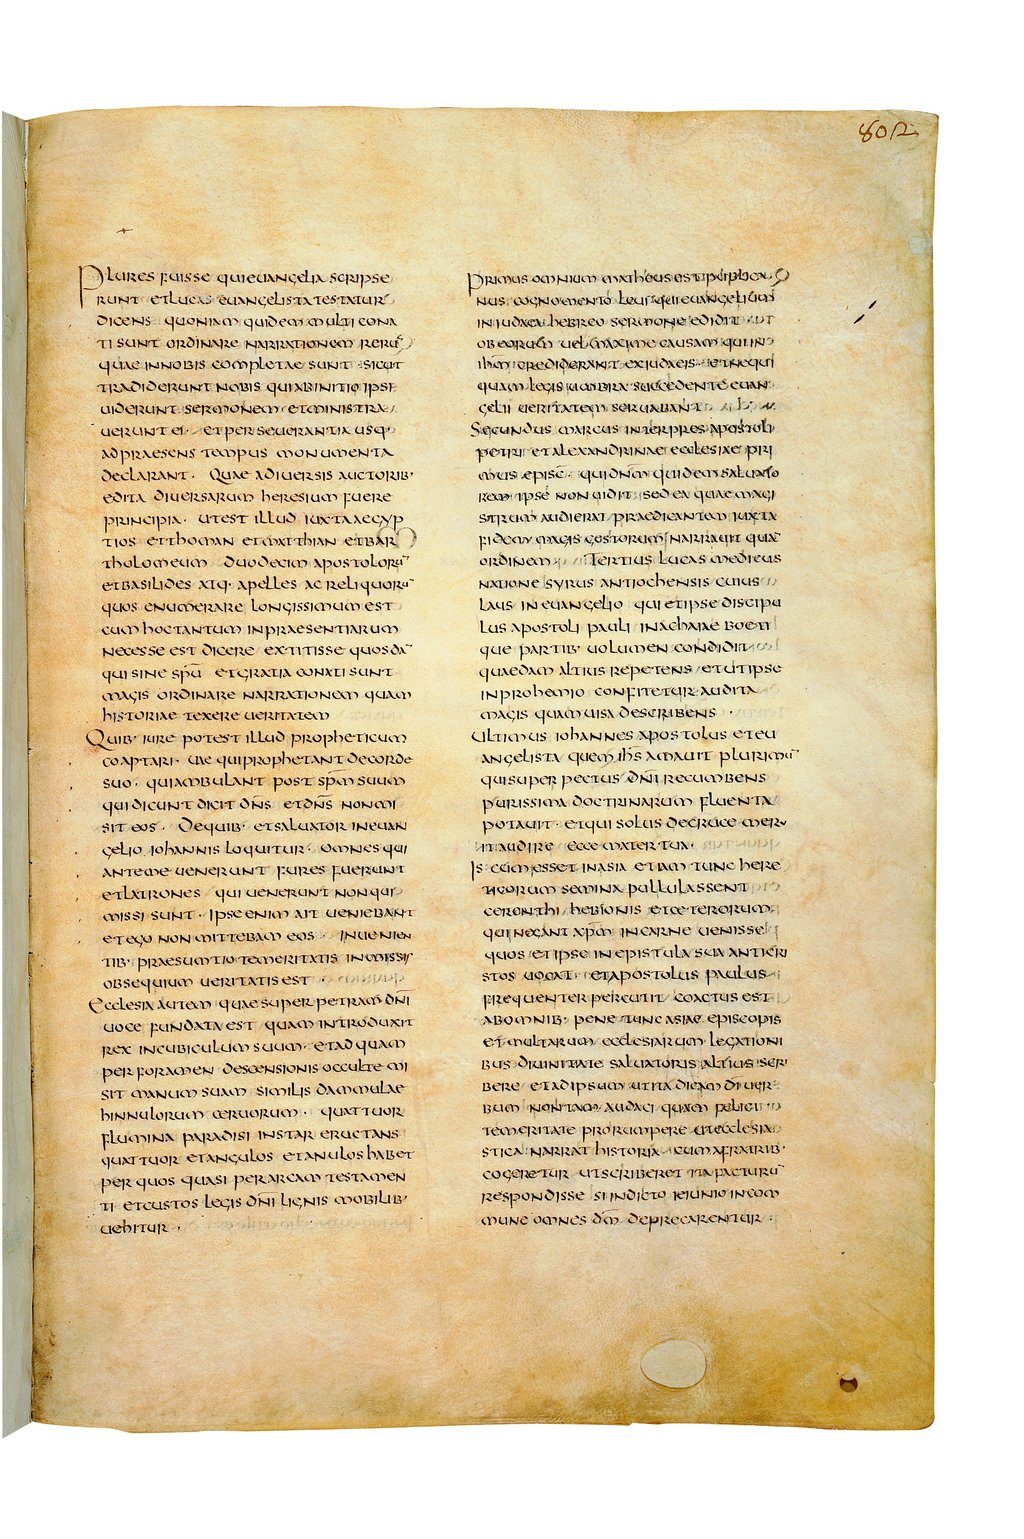 802
Plures fuisse qui evangelia scripse
runt et lucas evangelista testatur
dicens quoniam quidem multi cona
ti sunt ordinare narrationem rerū
quae in nobis completae sunt · sicut
tradiderunt nobis qui ab initio ipsi
viderunt sermonem et ministra
verunt ei · et perseverantia usq·
ad praesens tempus monumenta
declarant · Quae a diversis auctorib·
edita diversarum heresium fuere
principia · ut est illud iuxta aegyp
tios et thoman et matthian et bar
tholomeum duodecim apostolorū
et basilides atq· apelles ac reliquorū
quos enumerare longissimum est
cum hoc tantum in praesentiarum
necesse est dicere extitisse quosdā
qui sine sp̄u et gratia conati sunt
magis ordinare narrationem quam
historiae texere veritatem
Quib· iure potest illud propheticum
coaptari · vae qui prophetant de corde
suo · qui ambulant post sp̄m suum
qui dicunt dicit dn̄s et dn̄s non mi
sit eos · De quib· et salvator in evan
gelio iohannis loquitur · omnes qui
ante me venerunt fures fuerunt
et latrones qui venerunt non qui
missi sunt · Ipse enim ait veniebant
et ego non mittebam eos · In venien
tib· praesumtio temeritatis in missis
obsequium veritatis est
Ecclesia autem quae super petram dn̄i
voce fundata est quam introduxit
rex in cubiculum suum · et ad quam
per foramen descensionis occulte mi
sit manum suam similis dammulae
hinnulorum cervorum · quattuor
flumina paradisi instar eructans
quattuor et angulos et anulos habet
per quos quasi per arcam testamen
ti et custos legis dn̄i lignis mobilib·
vehitur ·
Primus omnium matheus est publica
nus cognomento levi qui evangelium
in iudaea hebreo sermone edidit
ob eorum vel maxime causam qui in
ih̄m crediderant ex iudaeis et nequi
quam legis umbra succedente evan
gelii veritatem servabant
Secundus marcus interpres apostoli
petri et alexandrinae ecclesiae pri
mus episc̄· qui dn̄m quidem salvato
rem ipse non vidit sed ea quae magi
strum audierat praedicantem iuxta
fidem magis gestorum narravit quā
ordinem · Tertius lucas medicus
natione syrus antiochensis cuius
laus in evangelio qui et ipse discipu
lus apostoli pauli in achaiae boeti
que partib· volumen condidit
quaedam altius repetens et ut ipse
in prohemio confitetur audita
magis quam visa describens ·
Ultimus iohannes apostolus et eu
angelista quem ih̄s amavit plurimū
qui super pectus dn̄i recumbens
purissima doctrinarum fluenta
potavit · et qui solus de cruce mer
it audire ecce mater tua ·
Is cum esset in asia et iam tunc here
ticorum semina pullulassent
cerinthi hebionis et ceterorum
qui negant xp̄m in carne venisse
quos et ipse in epistula sua anticri
stos vocat · et apostolus paulus
frequenter percutit coactus est
ab omnib· pene tunc asiae episcopis
et multarum ecclesiarum legationi
bus divinitate salvatoris altius scri
bere et ad ipsum ut ita dicam d̄i ver
bum non tam audaci quam felici
temeritate prorumpere ut ecclesia
stica narrat historia cum a fratrib·
cogeretur ut scriberet ita facturū
respondisse si indicto ieiunio in com
mune omnes d̄m deprecarentur ·